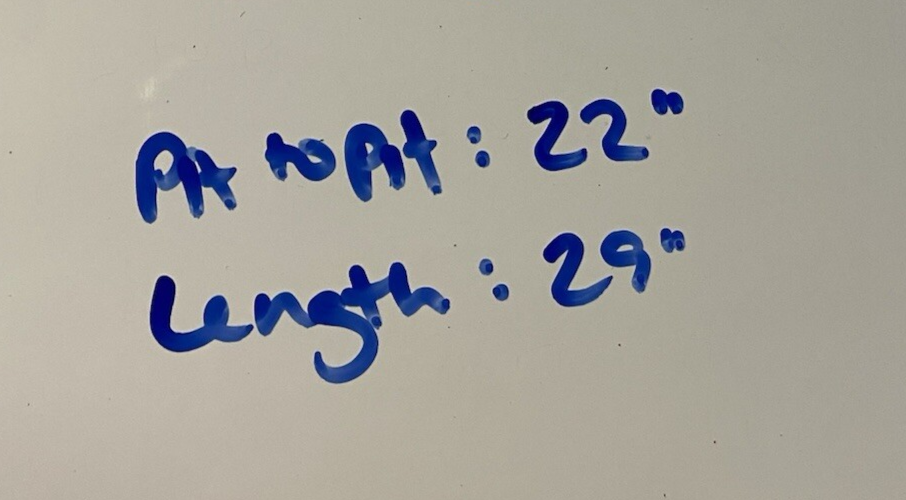 Pit to Pit : 22"
Length : 29"